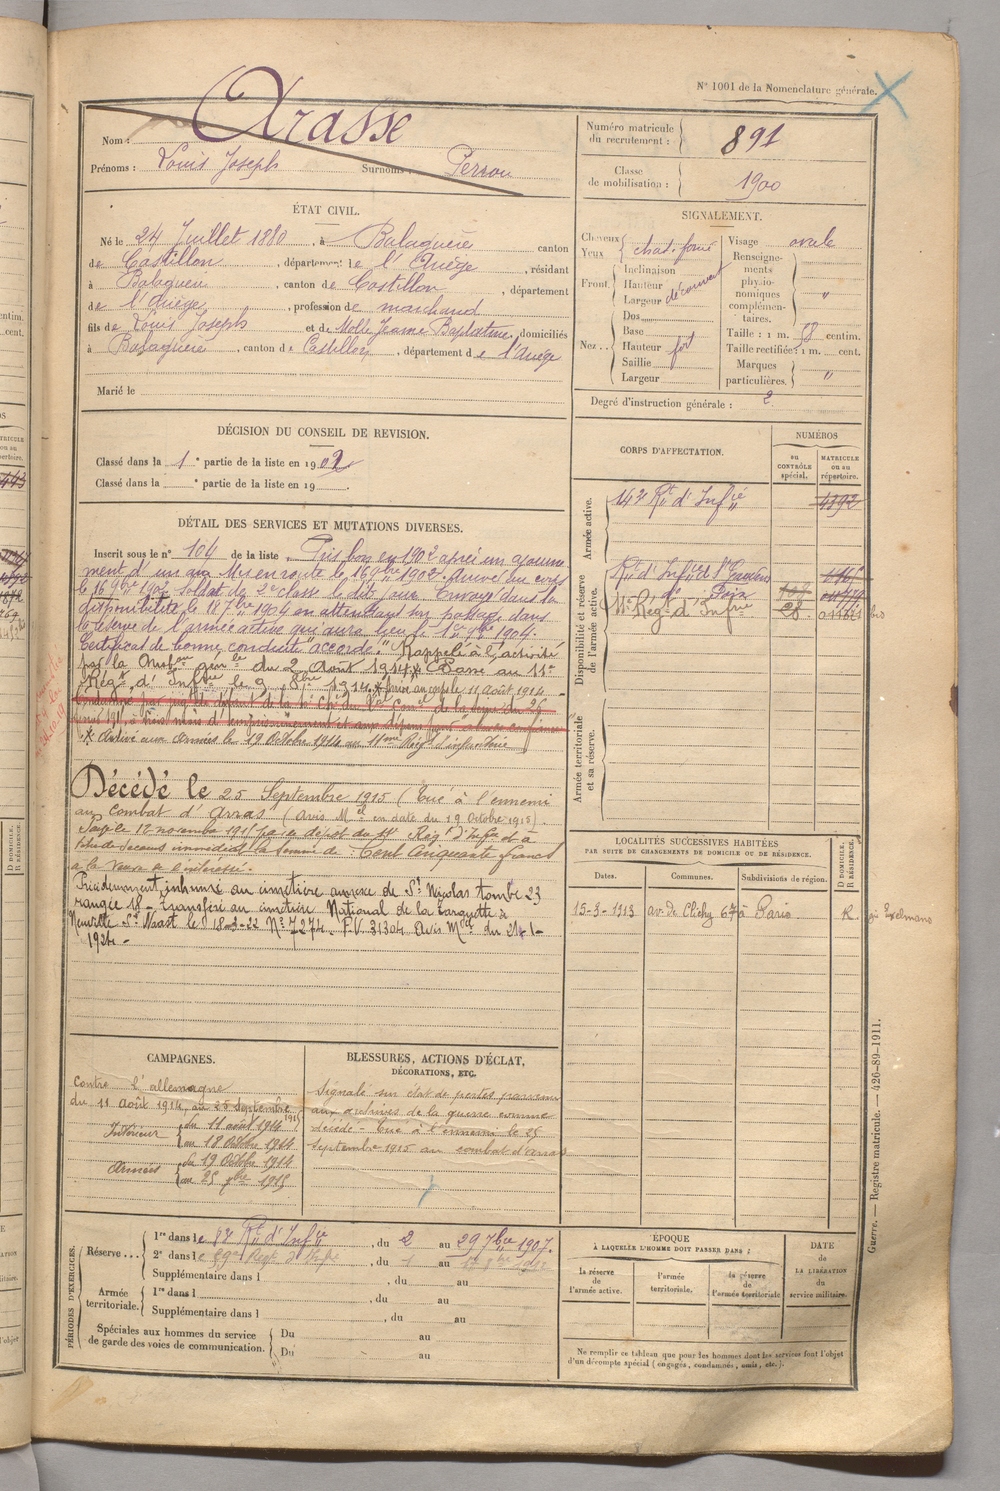 N° 1001 de la Nomenclature générale.
Nom : Arasse
Prénoms : Louis Joseph Surnoms : Perrou
Numéro matricule du recrutement : 891
Classe de mobilisation : 1900
ÉTAT CIVIL.
Né le 24 Juillet 1880, à Balaguère, canton
de Castillon, département de l'Ariège, résidant
à Balaguère, canton de Castillon, département
de l'Ariège, profession de marchand
fils de Louis Joseph et de Molle Jeanne Baptistine, domiciliés
à Balaguère, canton de Castillon, département de l'Ariège
Marié le
SIGNALEMENT.
Cheveux
Yeux
chat. foncé
Front
Inclinaison
Hauteur
Largeur
découvert
Nez
Dos
Base
Hauteur
Saillie
Largeur
fort
Visage ovale
Renseignements physionomiques complémentaires. "
Taille : 1 m. 58 centim.
Taille rectifiée : 1 m. cent.
Marques particulières. "
Degré d'instruction générale : 2
DÉCISION DU CONSEIL DE REVISION.
Classé dans la 1e partie de la liste en 1902
Classé dans la e partie de la liste en 19
DÉTAIL DES SERVICES ET MUTATIONS DIVERSES.
Inscrit sous le n° 104 de la liste. Pris bon en 1902 après un ajourne
ment d'un an. Mis en route le 16 9bre 1902. Arrivé au corps
le 16 9bre 1902 soldat de 2e classe le dit jour. Envoyé dans la
disponibilité le 18 7bre 1904 en attendant son passage dans
la réserve de l'armée active qui aura lieu le 1er 9bre 1904.
Certificat de bonne conduite "accordé." Rappelé à l'activité
par la Mobon générale du 2 Août 1914. Passé au 11e
Régt d'Infrie le 9 8bre 1914. Arrivé au corps le 11 Août 1914
* Arrivé aux Armées le 19 Octobre 1914 au 11me Régt d'infanterie
Décédé le 25 Septembre 1915 (Tué à l'ennemi
au combat d'Arras (Avis Mel en date du 19 Octobre 1915).
Payé le 12 novembre 1915 par le dépôt du 11e Rég. d'Infie et à
titre de secours immédiat la somme de : Cent Cinquante francs
à la veuve de l'intéressé.
Précédemment inhumé au cimetière annexe de St Nicolas tombe 23
rangée 18 - transféré au cimetière National de la Targette à
Neuville St Vaast le 18-3-22 N° 7274. P.V. 31304 Avis Mel du 21-1-
1924 -
CORPS D'AFFECTATION.
NUMÉROS
au CONTRÔLE spécial.
MATRICULE ou au répertoire.
Armée active.
143e Rt d'Infie 4392
Disponibilité et réserve de l'armée active.
Rt d'Infie de St Gaudens
do Foix
11e Rég. d'Infrie 28
Armée territoriale et sa réserve.
LOCALITÉS SUCCESSIVES HABITÉES
PAR SUITE DE CHANGEMENTS DE DOMICILE OU DE RÉSIDENCE.
Dates. Communes. Subdivisions de région. D DOMICILE. R RÉSIDENCE.
15-3-1913 av. de Clichy 67 à Paris R
CAMPAGNES.
Contre l'allemagne
du 11 Août 1914, au 25 Septembre 1915
Intérieur du 11 août 1914
au 18 Octobre 1914
Armées du 19 Octobre 1914
au 25 7bre 1915
BLESSURES, ACTIONS D'ÉCLAT,
DÉCORATIONS, ETC.
Signalé sur état de pertes parvenu
aux archives de la guerre comme
décédé - Tué à l'ennemi le 25
Septembre 1915 au combat d'Arras
PÉRIODES D'EXERCICES.
Réserve
1re dans le Rt d'Infie, du 2 au 29 7bre 1907.
2e dans le 59e Régt d'Infie, du 1 au
Supplémentaire dans l , du au
Armée territoriale.
1re dans l , du au
Supplémentaire dans l , du au
Spéciales aux hommes du service
de garde des voies de communication.
Du au
Du au
ÉPOQUE
À LAQUELLE L'HOMME DOIT PASSER DANS :
la réserve de l'armée active.
l'armée territoriale.
la réserve de l'armée territoriale
DATE de LA LIBÉRATION du service militaire.
Ne remplir ce tableau que pour les hommes dont les services font l'objet
d'un décompte spécial (engagés, condamnés, omis, etc.).
Guerre. — Registre matricule. — 426-89-1911.